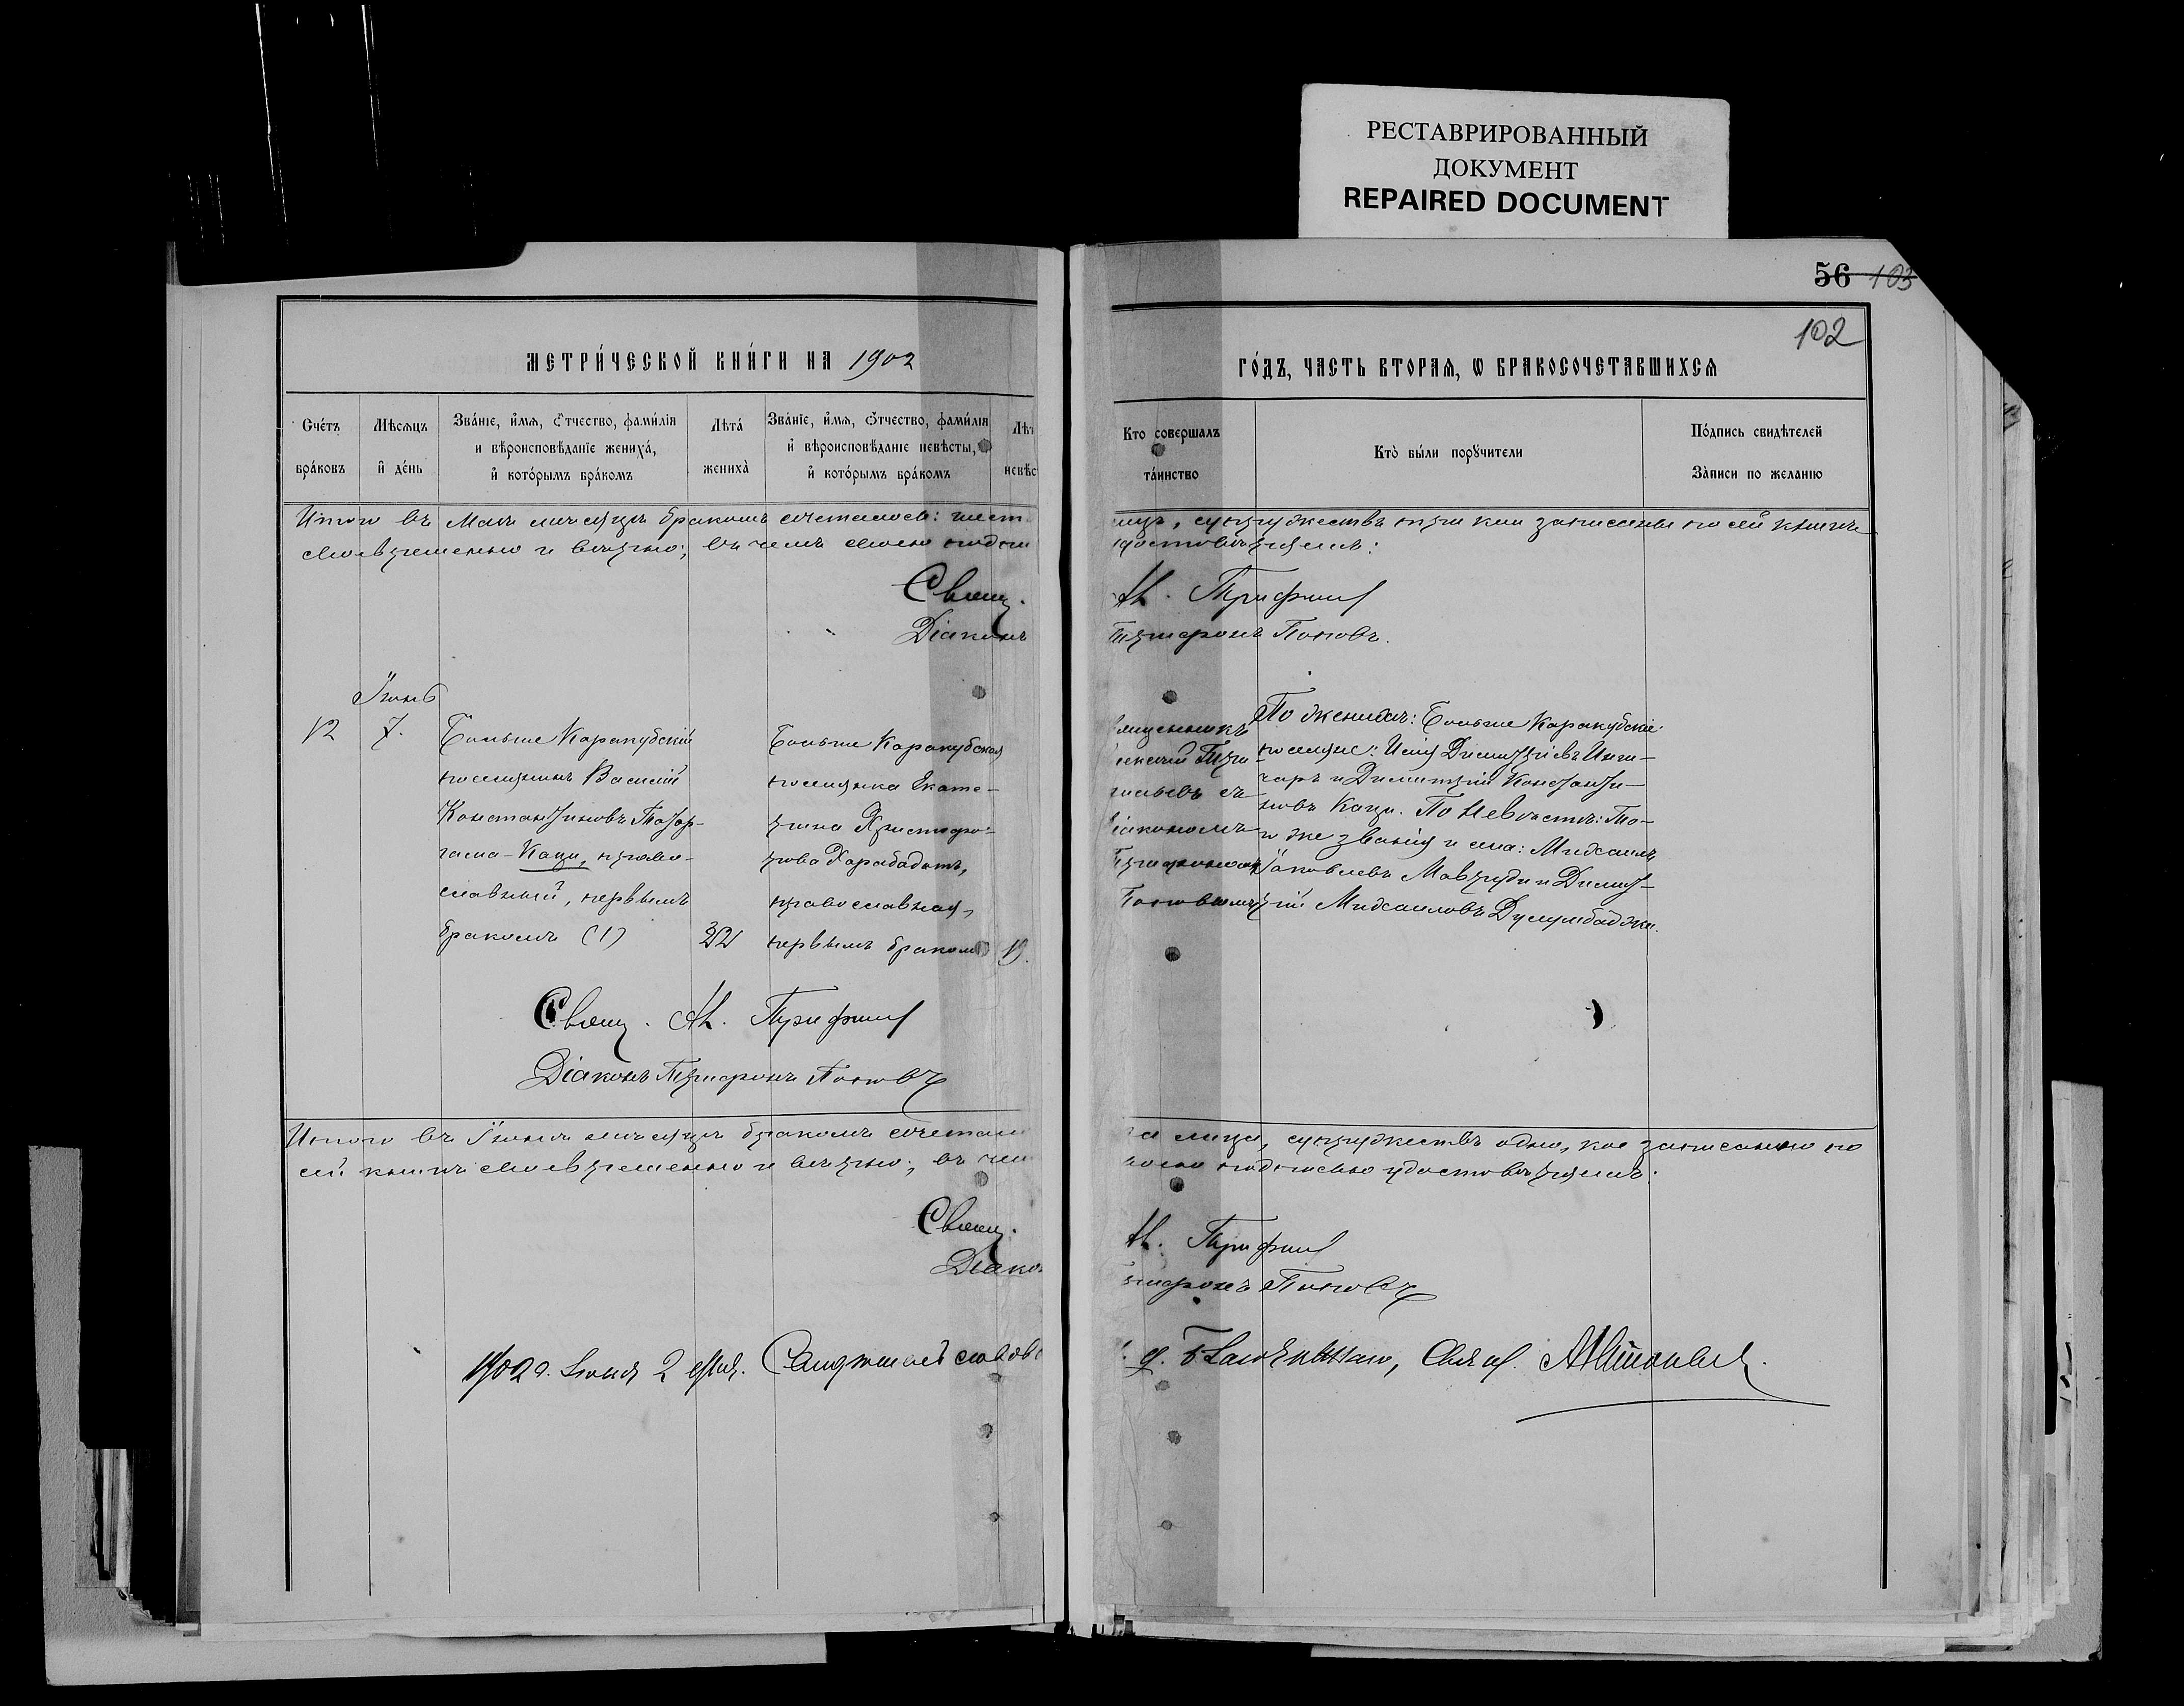 РЕСТАВРИРОВАННЫЙ
ДОКУМЕНТ
REPAIRED DOCUMENT
56 103
102
МЕТРИ́ЧЕСКОЙ КНИ́ГИ НА 1902
ГО́ДЪ, ЧАСТЬ ВТОРАѦ, Ѡ БРАКОСОЧЕТАВШИХСѦ
Сче́тъ
бра́ковъ
Мѣсѧцъ
и́ де́нь
Зва́нїе, и́мѧ, ѻ́тчество, фами́лїѧ
и вѣроисповѣданїе жениха́,
и́ кото́рымъ бра́комъ
Лѣта́
жениха̀
Зва́нїе, и́мѧ, ѻ́тчество, фами́лїѧ
и́ вѣроисповѣданїе невѣсты,
и́ кото́рымъ бра́комъ
Лѣт
невѣс
Кто совершалъ
та́инство
Кто̀ бы́ли порꙋчители
По́дпись свидѣтелей
За̀писи по желанїю
Итого въ Маѣ мѣсяцѣ бракомъ сочеталось: шест
своевременно и вѣрно; въ чемъ своею подпи
лицъ, супружествъ три кои записаны по сей книгѣ
удостовѣряемъ:
Свящ.
Діаконъ
Ал. Трифил
Трифонъ Поповъ.
Іюнь
12
7.
Больше Каракубскій
поселянинъ Василій
Константиновъ
Каци, право-
славный, первымъ
бракомъ (1)
22
Больше Каракубская
поселянка Екате-
рина Христофо-
рова Харабадотъ,
православная,
первымъ бракомъ
19.
Священникъ
съ
діакономъ
Трифономъ
Поповымъ
По женихѣ: Больше Каракубскіе
поселяне: Илія Димитріевъ
и Димитрій Константи-
новъ Каци. По Невѣстѣ: То-
го же званія и села: Михаилъ
Іаковлевъ Мавроди и Димит-
рій Михаиловъ
Свящ. Ал. Трифил
Діаконъ Трифонъ Поповъ
Итого въ Іюнѣ мѣсяцѣ бракомъ сочетал
сей книгѣ своевременно и вѣрно; въ чем
лица, супружествъ одно, кое записанно по
подписью удостовѣряемъ:
Свящ.
Діакон
Ал. Трифил
Трифонъ Поповъ
1902 г. Іюня 2 дня.